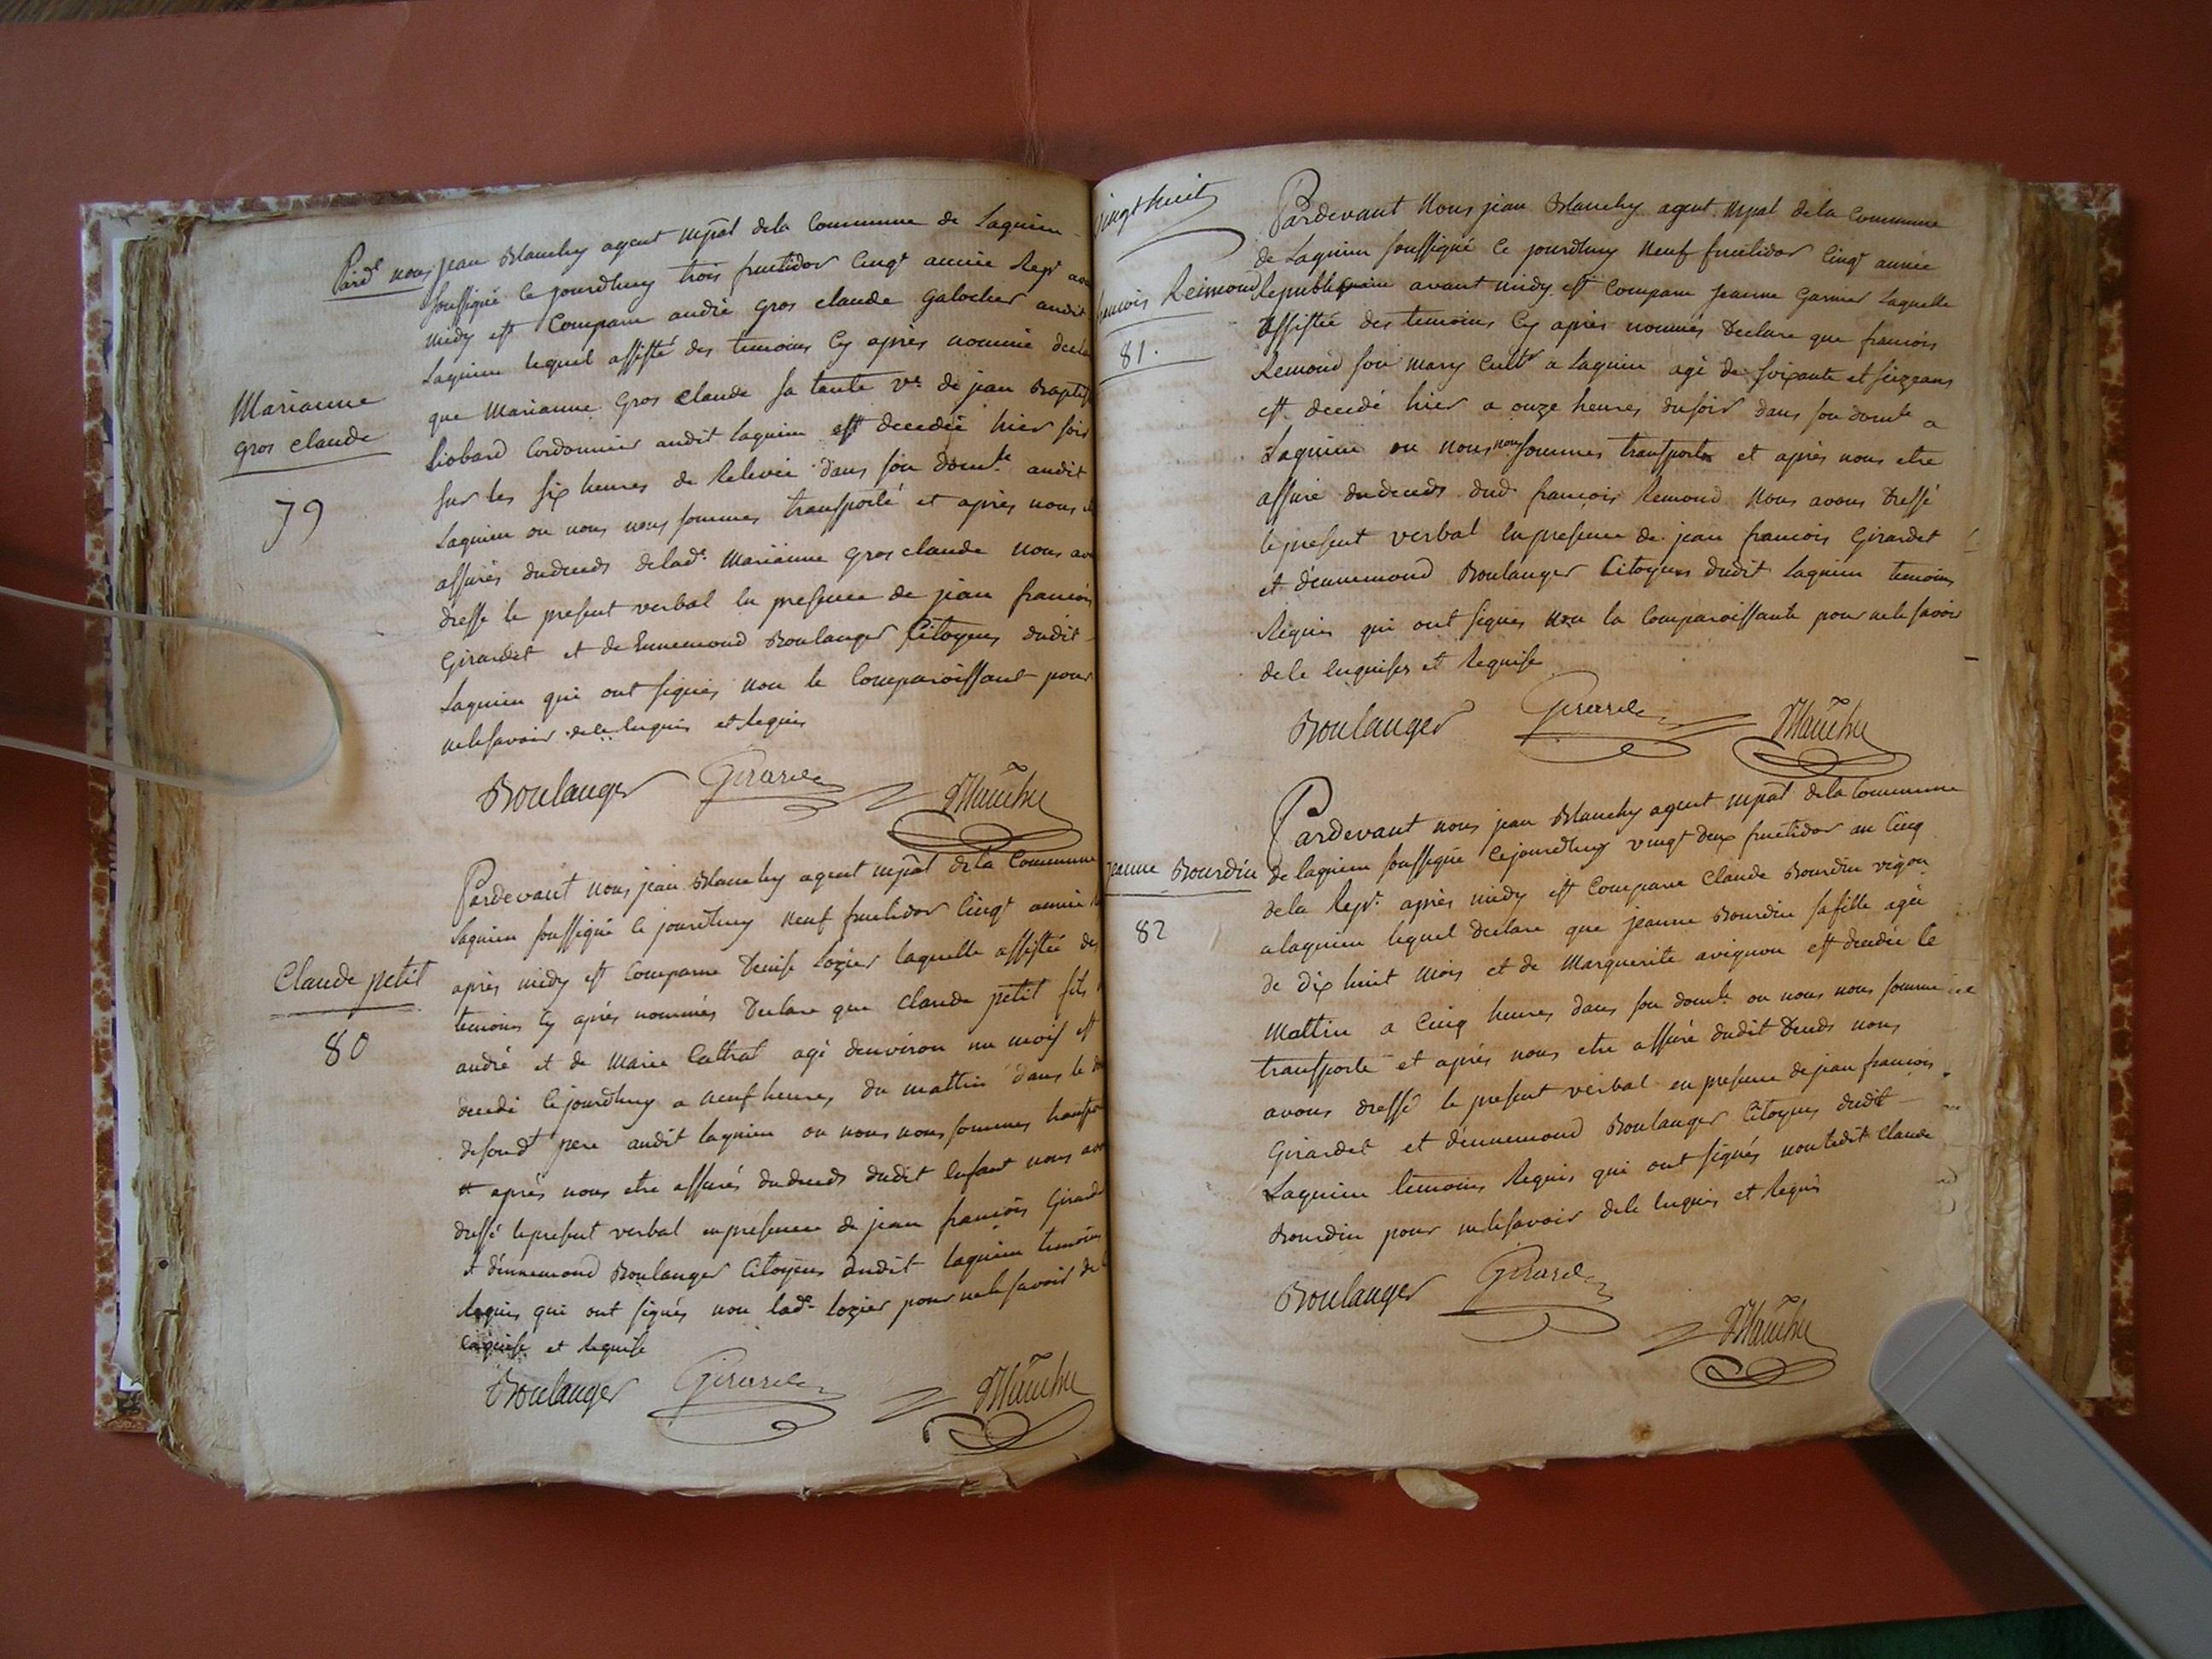 Pard.t nous jean Blanchy agent mpal dela Commune de Lagnieu
soussigné ce jourdhuy trois fructidor cinq.e année Rep.e
midy est Comparu andré gros claude galocher audit
Lagnieu lequel assisté des temoins cy après nommé
que Marianne Gros claude sa tante v.e de jean
Liobard Cordonnier audit Lagnieu est decedée hier soir
sur les six heures de Relevée dans son domi.le audit
Lagnieu ou nous nous sommes transporté et après nous
assurés du deceds delad.e Marianne gros claude nous
dressé le present verbal en presence de jean francois
Girardet et de Ennemond Boulanger Citoyens dudit
Lagnieu qui ont signés non le Comparoissant pour
ne le savoir de ce enquis et Requis
Marianne
gros claude
79
Boulanger Girardet Blanchy
Pardevant nous jean Blanchy agent mpal dela Commune
Lagnieu soussigné ce jourdhuy neuf fructidor cinq.e année
après midy est Comparue Denise Lozier laquelle assistée des
temoins cy après nommés Declare que claude petit fils
andré et de Marie Cattral agé denviron un mois est
decedé cejourdhuy a neuf heures du mattin dans le
desond.t pere audit lagnieu ou nous nous sommes
et après nous etre assurés du deceds dudit Enfant nous
dressé le present verbal en presence de jean francois
et d'ennemond Boulanger Citoyens dudit lagnieu temoins
Requis qui ont signés non lad.e Lozier pour ne le savoir de
enquise et Requise
Claude petit
80
Boulanger Girardet Blanchy
Vingt huit
Pardevant Nous jean Blanchy agent mpal dela Commune
de Lagnieu soussigné ce jourdhuy neuf fructidor cinq.e année
Republiquaine avant midy est Comparu jeanne Garnier Laquelle
assistée des temoins cy après nommés Declare que francois
Remond son mary cult.r a Lagnieu agé de soixante et seize ans
est decedé hier a onze heures du soir dans son domi.le a
Lagnieu ou nous nous sommes transportés et après nous etre
assuré du deceds dud. françois Remond Nous avons Dressé
le present verbal en presence de jean francois Girardet
et d'ennemond Boulanger Citoyens dudit Lagnieu temoins
Requis qui ont signés non la Comparoissante pour ne le savoir
de ce enquise et Requise
Reimond
81.
Boulanger Girardet Blanchy
Pardevant nous jean Blanchy agent mpal dela Commune
de lagnieu soussigné cejourdhuy vingt deux fructidor an cinq
dela Rep.e après midy est Comparu Claude Bourdin vigon
a lagnieu lequel declare que jeanne Bourdin sa fille agée
de dix huit mois et de Marguerite avignon est decedée le
mattin a cinq heures dans son domi.le ou nous nous sommes
transporté et après nous etre assuré dudit Deceds nous
avons dressé le present verbal en presence de jean francois
Girardet et d'ennemond Boulanger Citoyens dudit
Lagnieu temoins Requis qui ont signés non ledit Claude
Bourdin pour ne le savoir de ce enquis et Requis
jeanne Bourdin
82
Boulanger Girardet
Blanchy